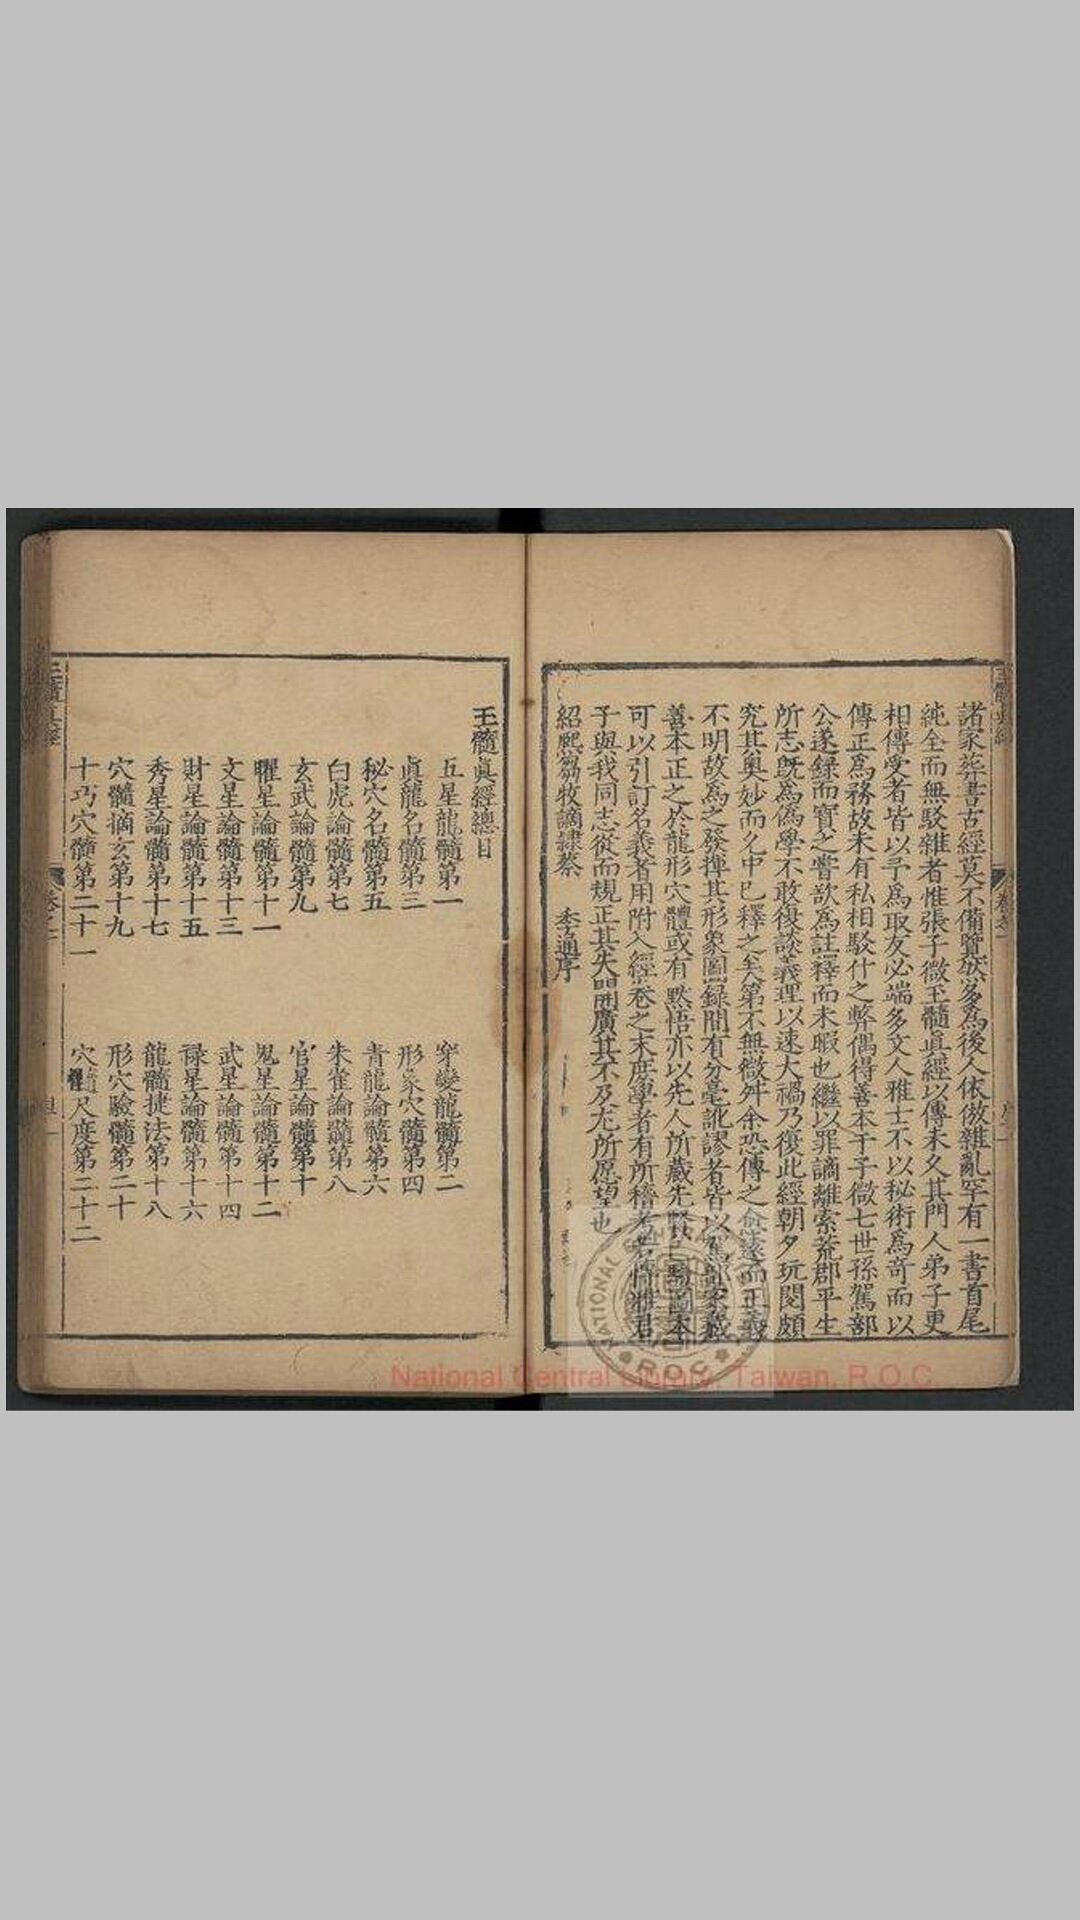 諸家葬書古經莫不備覽然多為後人依倣雜亂罕有一書首尾
純全而無駁雜者惟張子微玉髓眞經以傳未久其門人弟子更
相傳受者皆以予為取友必端多文人雅士不以秘術為奇而以
傳正爲務故未有私相駁什之弊偶得善本于子微七世孫駕部
公遂録而寶之嘗欲為註釋而未暇也繼以罪謫離索荒郡平生
所志既為偽學不敢復談義理以速大禍乃復此經朝夕玩閱頗
究其奥妙而允中巳釋之矣第不無微舛余恐傳之愈遠而正義
不明故為之發揮其形象圖録間有分毫訛謬者皆以駕部家藏
善本正之於龍形穴體或有黙悟亦以先人所藏先賢圖本
可以引訂名義者用附入經卷之末庻學者有所稽考若博雅君
子與我同志從而規正其失開廣其不及尤所愿望也
紹熈芻牧謫隷蔡 季通序
玉髓眞經總目
五星龍髓第一 穿變龍髓第二
眞龍名髓第三 形象穴髓第四
秘穴名髓第五 青龍論髓第六
白虎論髓第七 朱雀論髓第八
玄武論髓第九 官星論髓第十
曜星論髓第十一 鬼星論髓第十二
文星論髓第十三 武星論髓第十四
財星論髓第十五 禄星論髓第十六
秀星論髓第十七 龍髓捷法第十八
穴髓摘玄第十九 形穴驗髓第二十
十巧穴髓第二十一 穴髓尺度第二十二
National Central Library, Taiwan, R.O.C.